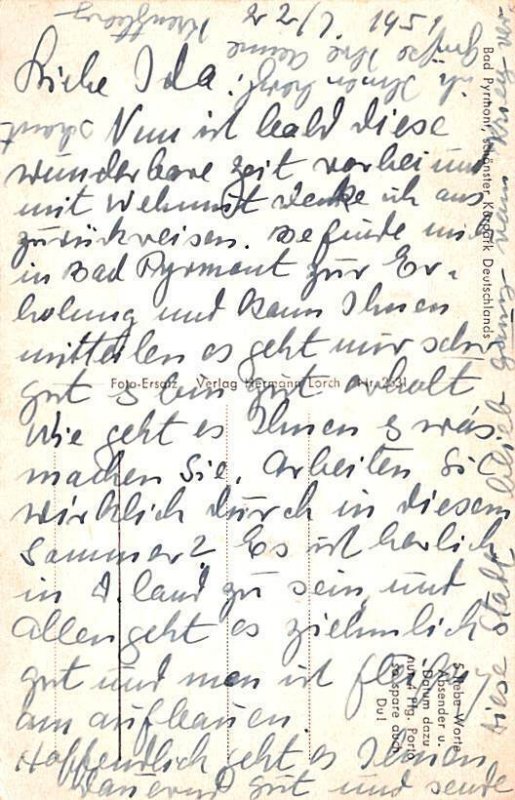 22/7. 1951
Liebe Ida!
Nun ist bald diese
wunderbare Zeit vorbei und
mit Wehmut denke ich ans
zurückreisen. Befinde mich
in Bad Pyrmont zur Er-
holung und kann Ihnen
mitteilen es geht mir sehr
gut & bin gut erholt
Wie geht es Ihnen & was
machen Sie. Arbeiten Sie
wirklich durch in diesem
Sommer? Es ist herlich
in land zu sein und
allen geht es ziehmlich
gut und man ist fleißig
am aufbauen.
Hoffentlich geht es Ihnen
dauernd gut und sende
Ihre
Diese Stadt blieb ganz
Bad Pyrmont, schönster Kurpark Deutschlands
Foto-Ersatz Verlag Hermann Lorch Nr. 2631
Schreibe 5 Worte,
Absender u.
Datum dazu
nur 4 Pfg. Porto
so spare auch
Du!